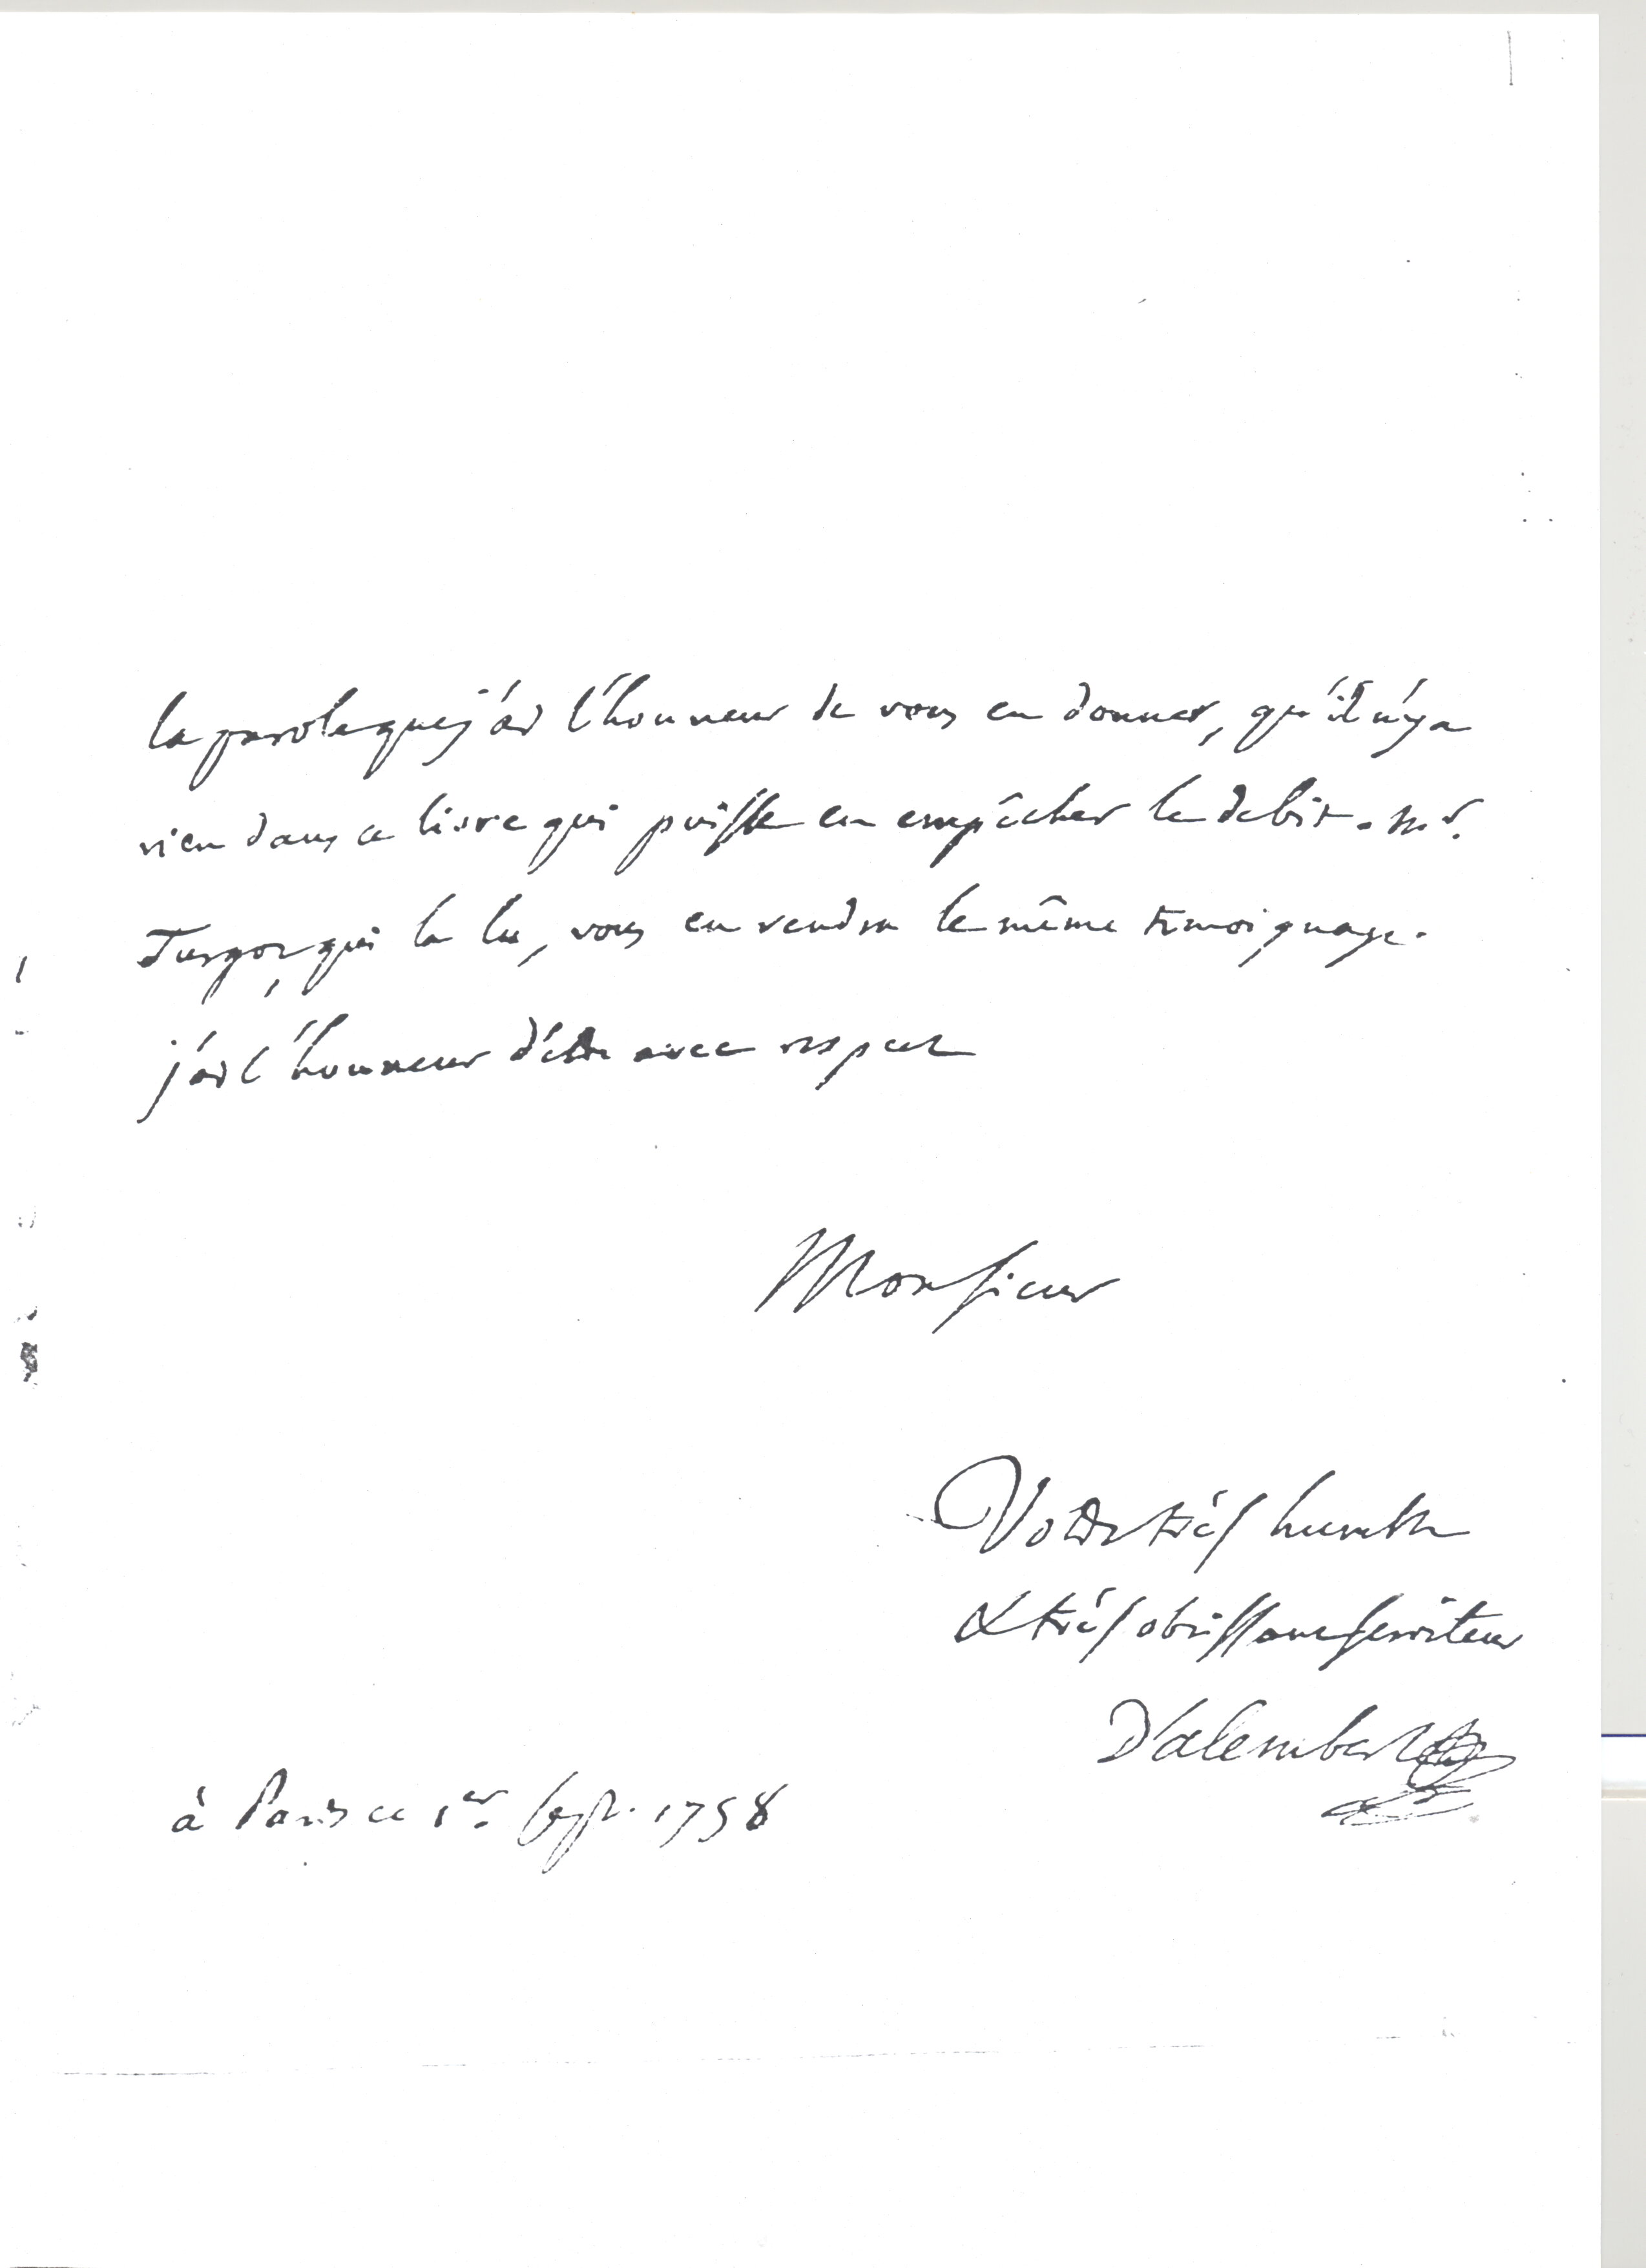 la parole que j'ai l'honneur de vous en donner, qu'il n'y a
rien dans ce livre qui puisse en empêcher le debit. Mr.
Turgot, qui l'a lu, vous en rendra le même temoignage.
j'ai l'honneur d'être avec respect
Monsieur
Votre très humble
& très obeissant serviteur
D'alembert
à Paris ce 1er. sept. 1758